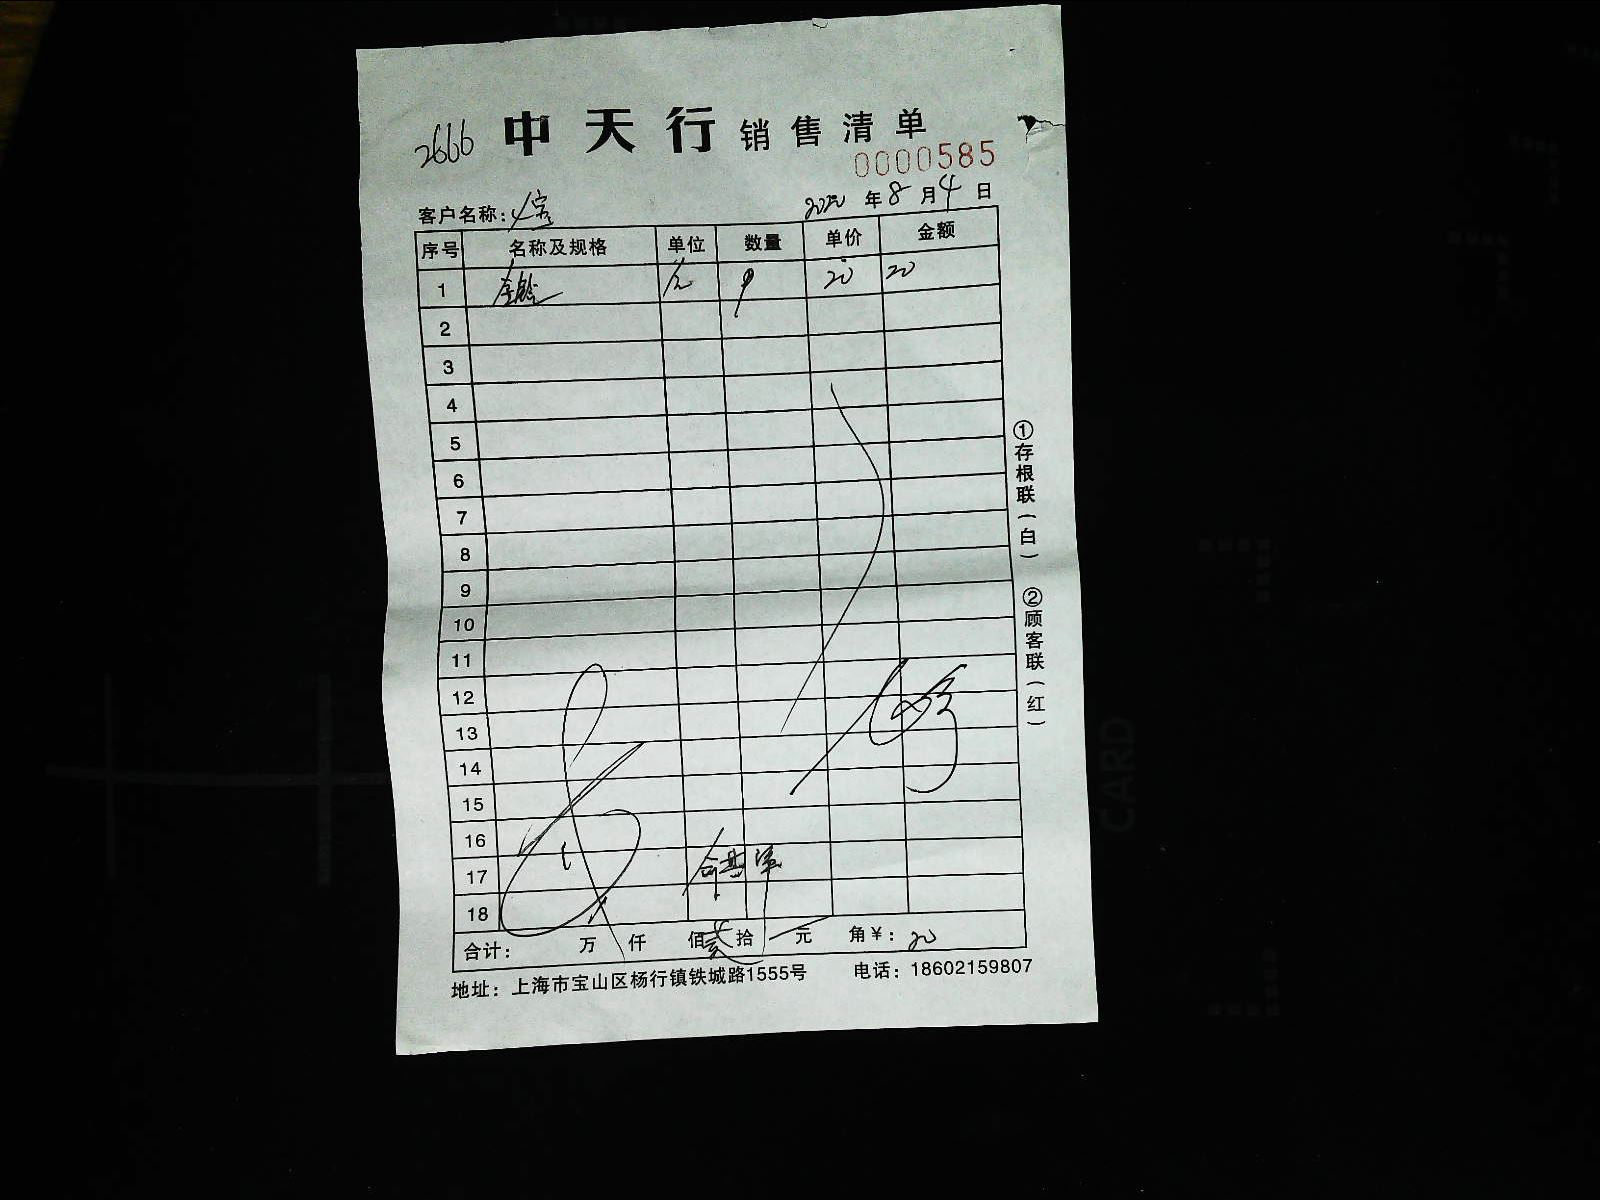 2666 中天行 销售清单
0000585
客户名称: 2020 年 8 月 4 日
序号 名称及规格 单位 数量 单价 金额
1 20 20
2
3
4
5
6
7
8
9
10
11
12
13
14
15
16
17
18
合计: 万 仟 佰 贰 拾 元 角 ¥: 20
地址: 上海市宝山区杨行镇铁城路1555号 电话: 18602159807
①存根联(白) ②顾客联(红)